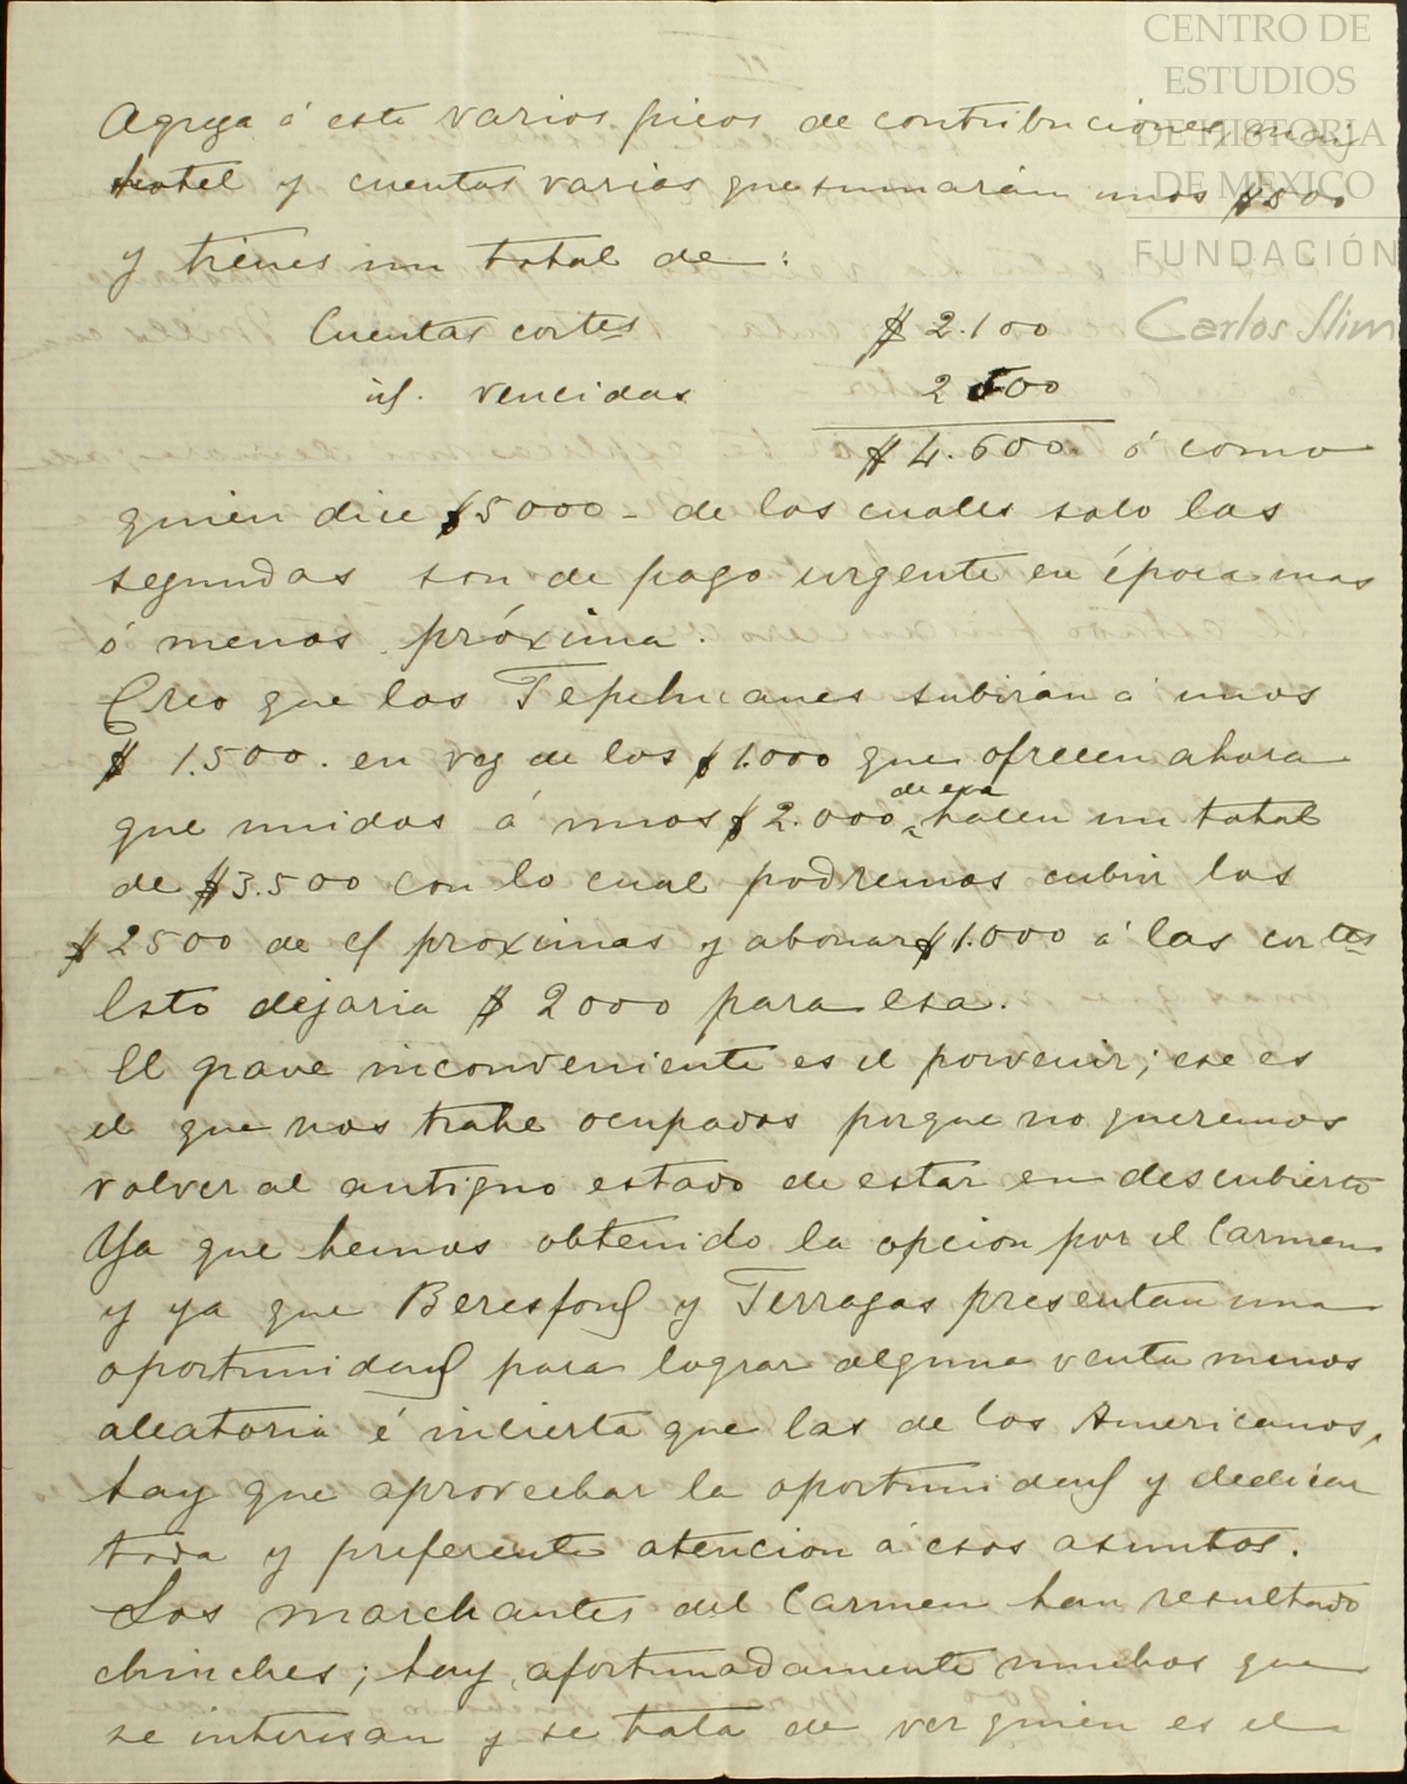 CENTRO DE
ESTUDIOS
DE HISTORIA
DE MEXICO
FUNDACIÓN
Carlos Slim
Agrega á esto varios picos de contribuciones,
hotel y cuentas varias que sumarán unos $500
y tienes un total de:
Cuentas cortes $2.100
id. vencidas 2500
$4.600 ó como
quien dice $5000 - de los cuales solo las
segundas son de pago urgente en época mas
ó menos próxima.
Creo que los Tepehuanes subirán á unos
$1.500. en vez de los $1.000 que ofrecen ahora
que unidos á unos $2.000 de esa hacen un total
de $3.500 con lo cual podremos cubrir los
$2500 de c/ proximas y abonar $1.000 á las cortes
Esto dejaria $2000 para esa.
El grave inconveniente es el porvenir; ese es
el que nos trahe ocupados porque no queremos
volver al antiguo estado de estar en descubierto
Ya que hemos obtenido la opcion por el Carmen
y ya que Beresford y Terrazas presentan una
oportunidad para lograr alguna venta menos
aleatoria é incierta que las de los Americanos,
hay que aprovechar la oportunidad y dedicar
toda y preferente atencion á esos asuntos.
Los marchantes del Carmen han resultado
chinches; hay afortunadamente muchos que
se interesan y se trata de ver quien es el